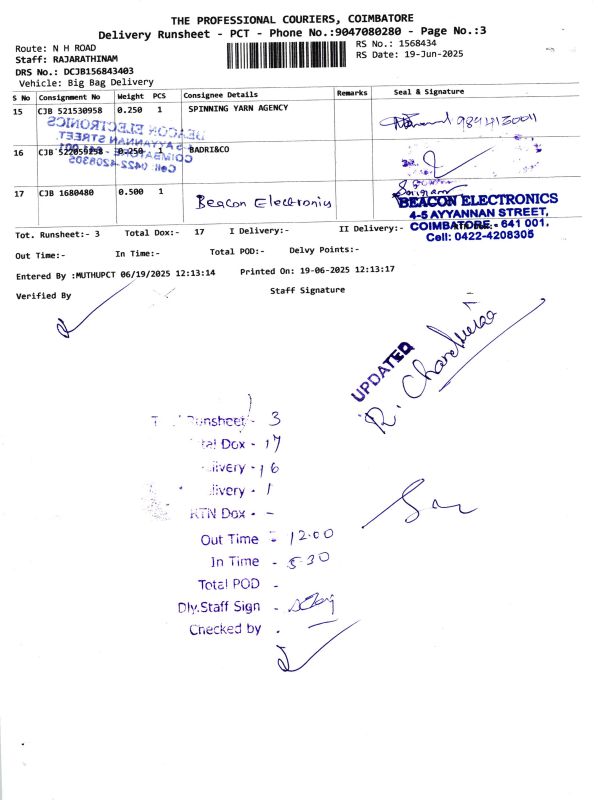 THE PROFESSIONAL COURIERS, COIMBATORE
Delivery Runsheet - PCT - Phone No.:9047080280 - Page No.:3
Route: N H ROAD
RS No.: 1568434
Staff: RAJARATHINAM
RS Date: 19-Jun-2025
DRS No.: DCJB156843403
Vehicle: Big Bag Delivery
S No Consignment No Weight PCS Consignee Details Remarks Seal & Signature
15 CJB 521530958 0.250 1 SPINNING YARN AGENCY
BEACON ELECTRONICS
4-5 AYYANNAN STREET,
COIMBATORE - 641 001.
Cell: 0422-4208305
16 CJB 0.250 1 BADRI&CO
17 CJB 1680480 0.500 1 Beacon Electronics
BEACON ELECTRONICS
4-5 AYYANNAN STREET,
COIMBATORE - 641 001.
Cell: 0422-4208305
Tot. Runsheet:- 3 Total Dox:- 17 I Delivery:- II Delivery:-
Out Time:- In Time:- Total POD:- Delvy Points:-
Entered By :MUTHUPCT 06/19/2025 12:13:14 Printed On: 19-06-2025 12:13:17
Verified By Staff Signature
UPDATED
Runsheet - 3
Dox - 17
- 16
- 1
RTN Dox - -
Out Time - 12.00
In Time - 5.30
Total POD -
Dly.Staff Sign -
Checked by -